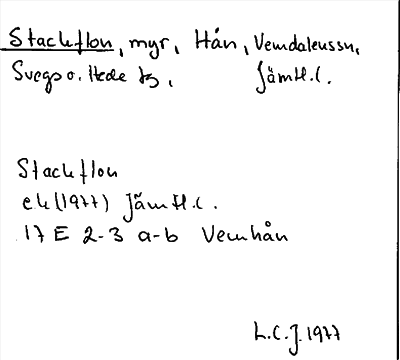 Stackflon, myr, Hån, Vemdalenssn,
Svegs o. Hede tg, Jämtl.l.
Stackflon
ek (1977) Jämtl.l.
17 E 2-3 a-b Vemhån
L.C.J. 1977